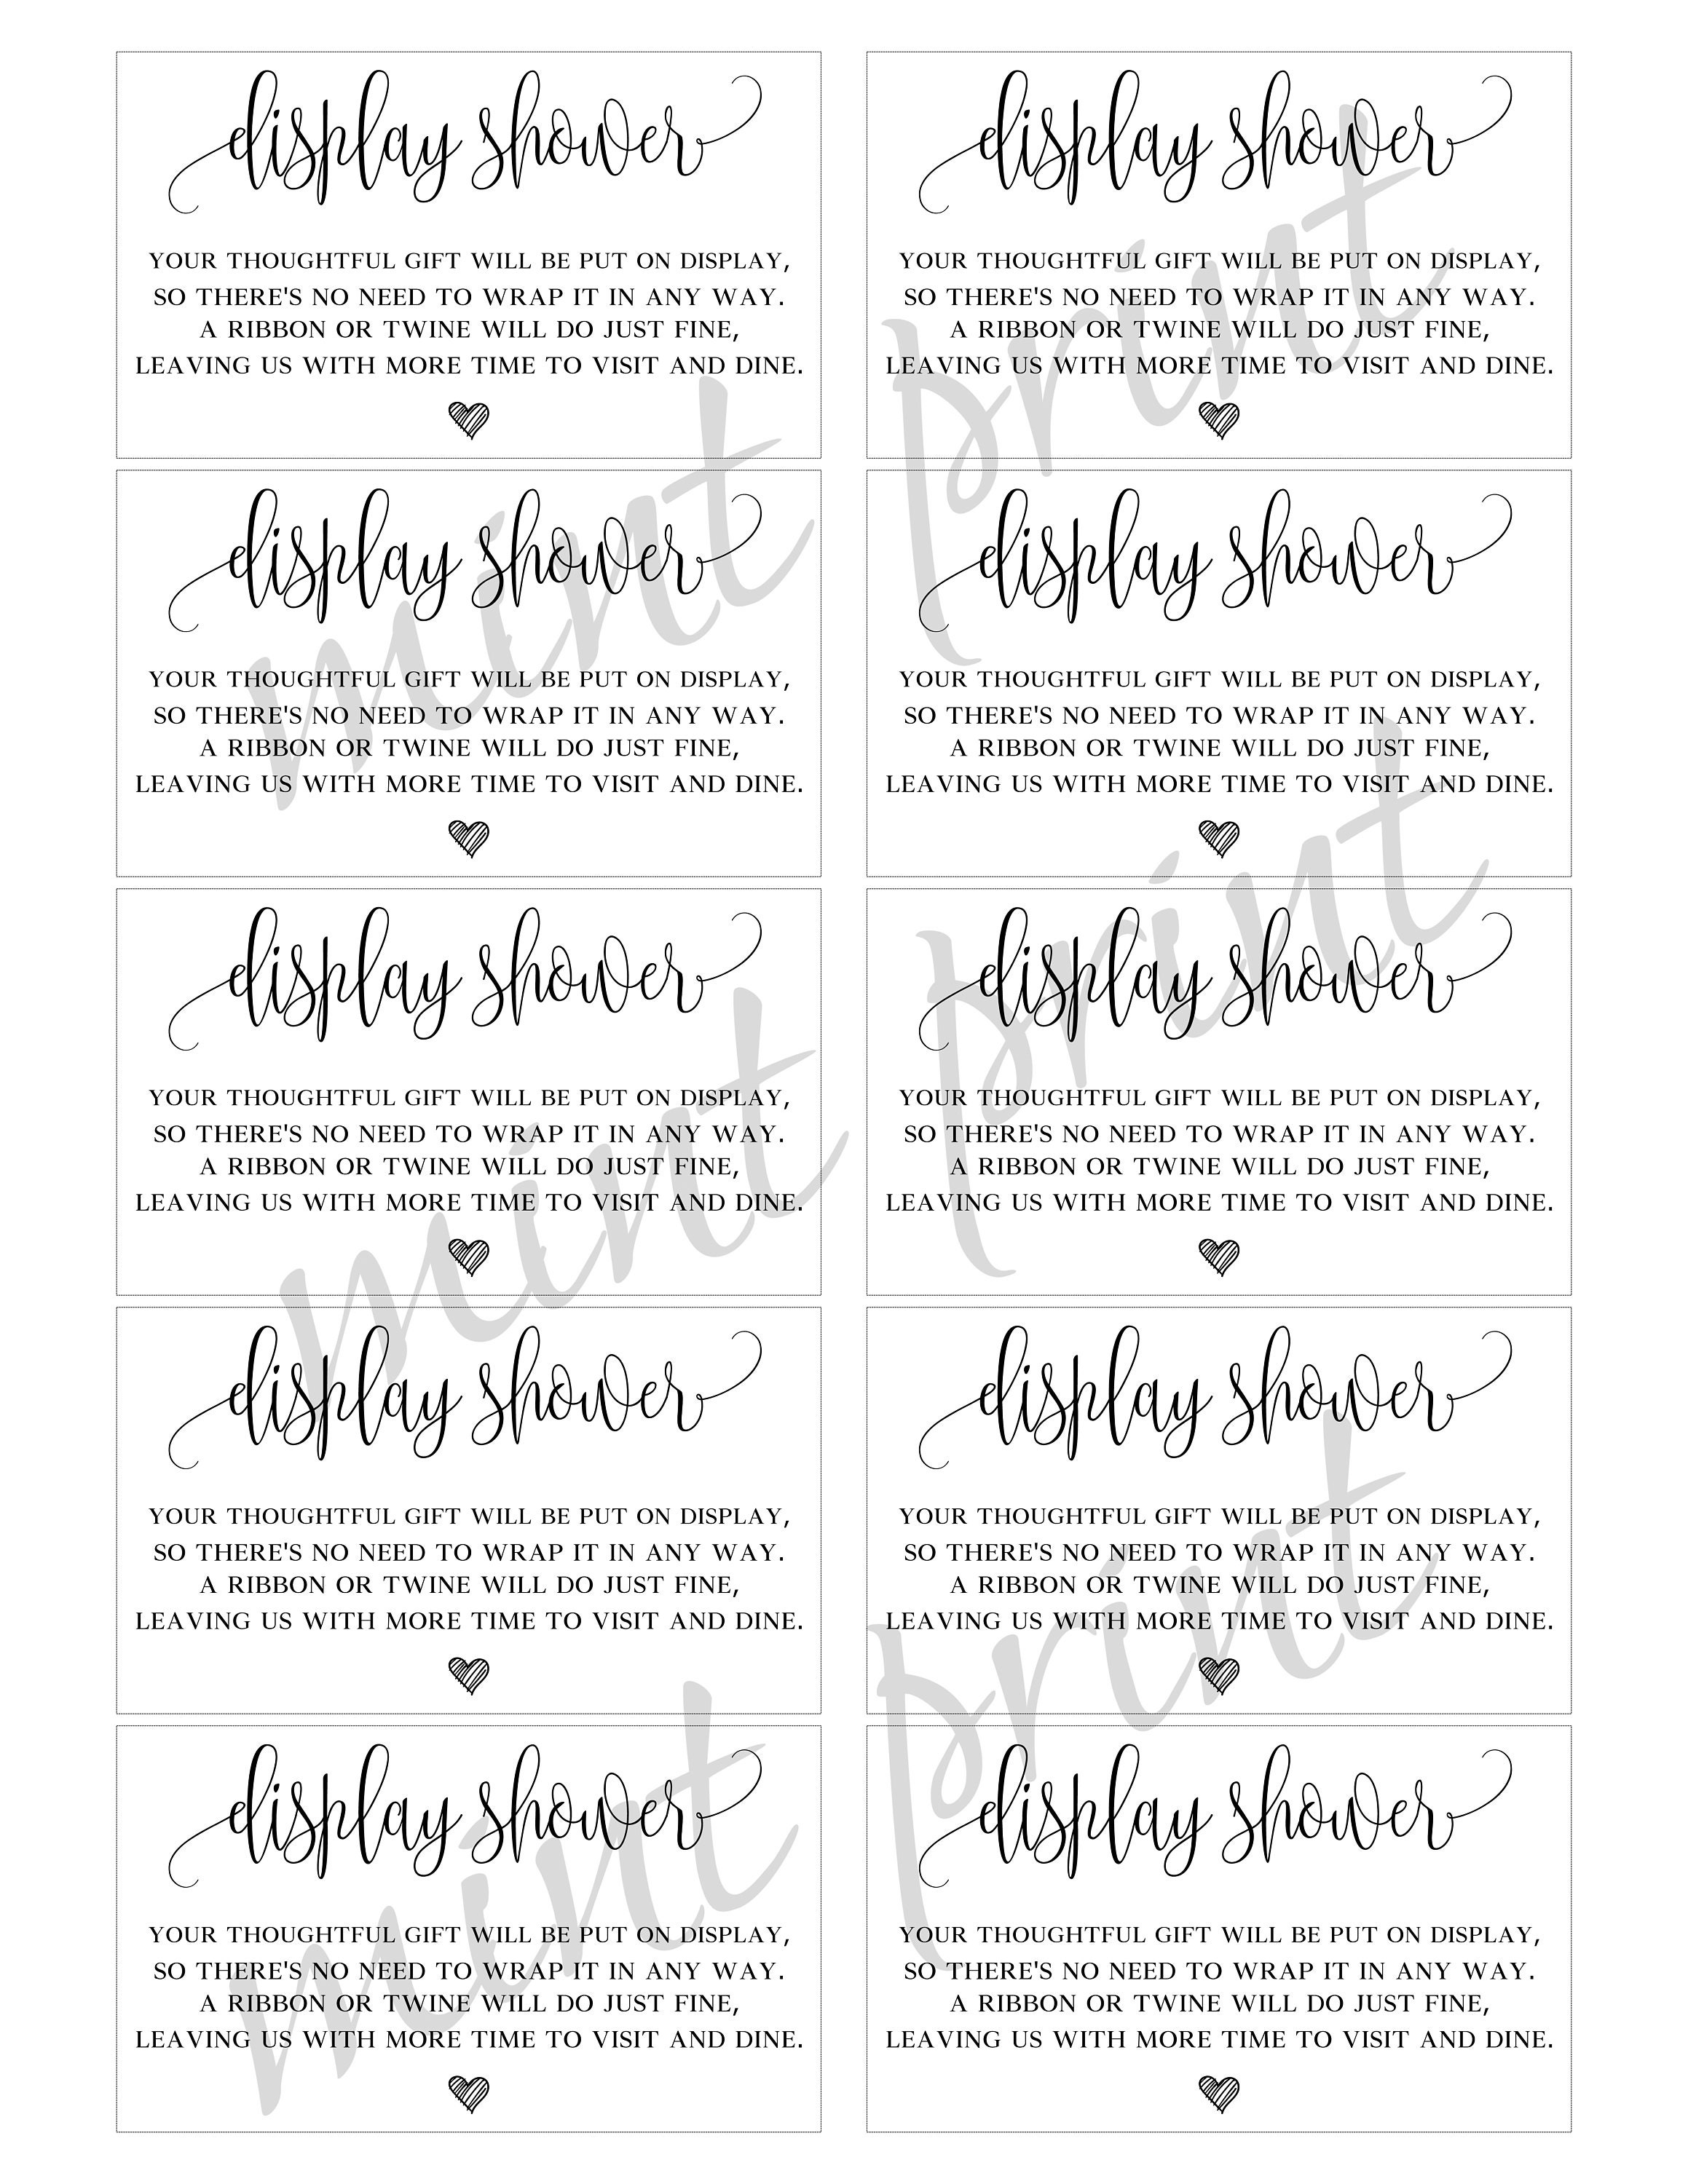 display shower
YOUR THOUGHTFUL GIFT WILL BE PUT ON DISPLAY,
SO THERE'S NO NEED TO WRAP IT IN ANY WAY.
A RIBBON OR TWINE WILL DO JUST FINE,
LEAVING US WITH MORE TIME TO VISIT AND DINE.
display shower
YOUR THOUGHTFUL GIFT WILL BE PUT ON DISPLAY,
SO THERE'S NO NEED TO WRAP IT IN ANY WAY.
A RIBBON OR TWINE WILL DO JUST FINE,
LEAVING US WITH MORE TIME TO VISIT AND DINE.
display shower
YOUR THOUGHTFUL GIFT WILL BE PUT ON DISPLAY,
SO THERE'S NO NEED TO WRAP IT IN ANY WAY.
A RIBBON OR TWINE WILL DO JUST FINE,
LEAVING US WITH MORE TIME TO VISIT AND DINE.
display shower
YOUR THOUGHTFUL GIFT WILL BE PUT ON DISPLAY,
SO THERE'S NO NEED TO WRAP IT IN ANY WAY.
A RIBBON OR TWINE WILL DO JUST FINE,
LEAVING US WITH MORE TIME TO VISIT AND DINE.
display shower
YOUR THOUGHTFUL GIFT WILL BE PUT ON DISPLAY,
SO THERE'S NO NEED TO WRAP IT IN ANY WAY.
A RIBBON OR TWINE WILL DO JUST FINE,
LEAVING US WITH MORE TIME TO VISIT AND DINE.
display shower
YOUR THOUGHTFUL GIFT WILL BE PUT ON DISPLAY,
SO THERE'S NO NEED TO WRAP IT IN ANY WAY.
A RIBBON OR TWINE WILL DO JUST FINE,
LEAVING US WITH MORE TIME TO VISIT AND DINE.
display shower
YOUR THOUGHTFUL GIFT WILL BE PUT ON DISPLAY,
SO THERE'S NO NEED TO WRAP IT IN ANY WAY.
A RIBBON OR TWINE WILL DO JUST FINE,
LEAVING US WITH MORE TIME TO VISIT AND DINE.
display shower
YOUR THOUGHTFUL GIFT WILL BE PUT ON DISPLAY,
SO THERE'S NO NEED TO WRAP IT IN ANY WAY.
A RIBBON OR TWINE WILL DO JUST FINE,
LEAVING US WITH MORE TIME TO VISIT AND DINE.
display shower
YOUR THOUGHTFUL GIFT WILL BE PUT ON DISPLAY,
SO THERE'S NO NEED TO WRAP IT IN ANY WAY.
A RIBBON OR TWINE WILL DO JUST FINE,
LEAVING US WITH MORE TIME TO VISIT AND DINE.
display shower
YOUR THOUGHTFUL GIFT WILL BE PUT ON DISPLAY,
SO THERE'S NO NEED TO WRAP IT IN ANY WAY.
A RIBBON OR TWINE WILL DO JUST FINE,
LEAVING US WITH MORE TIME TO VISIT AND DINE.
mint print
mint print
mint print